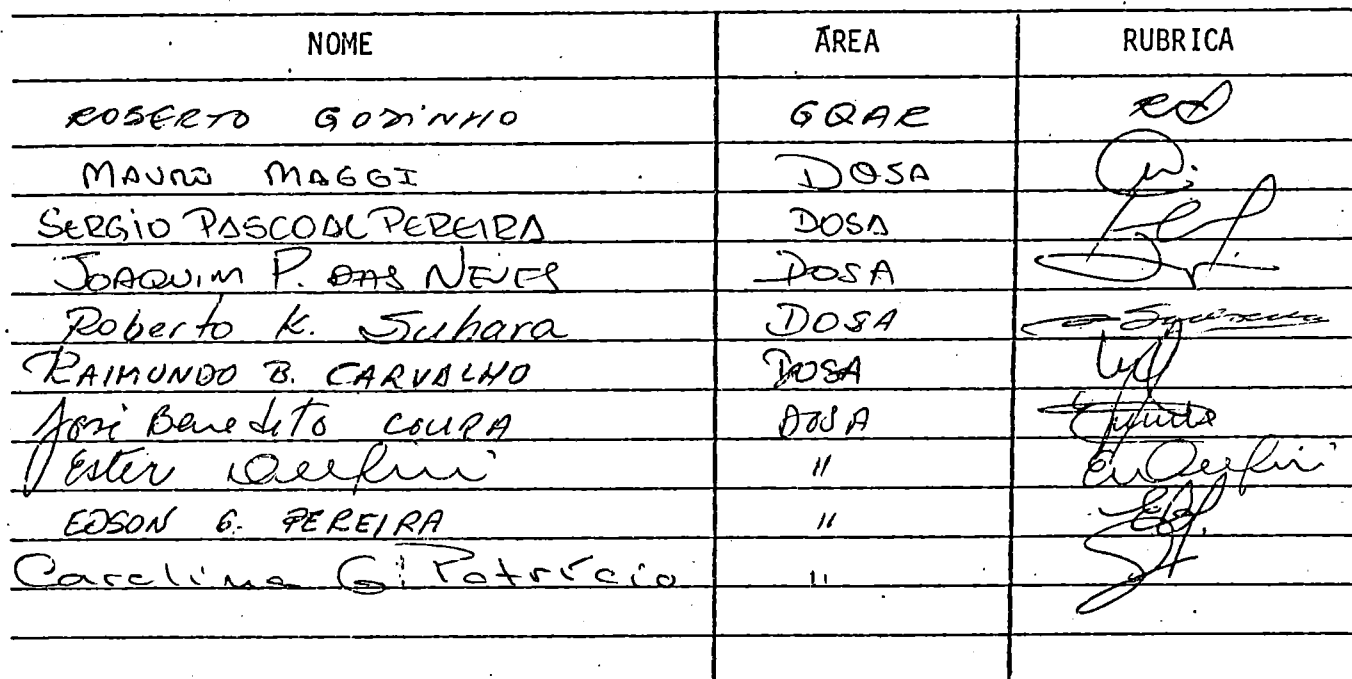 NOME ÁREA RUBRICA
ROBERTO GODINHO GQAR
MAURO MAGGI DOSA
SERGIO PASCOAL PEREIRA DOSA
JOAQUIM P. DAS NEVES DOSA
Roberto K. Suhara DOSA
RAIMUNDO B. CARVALHO DOSA
José Benedito COURA DOSA
Ester "
EDSON G. PEREIRA "
Carolina G. Patrício "